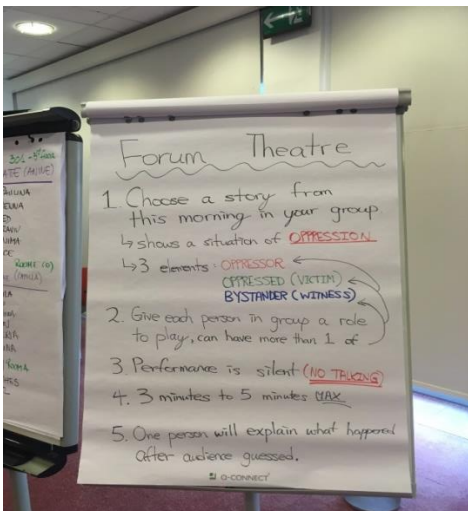 Forum Theatre
1. Choose a story from
this morning in your group
↳ shows a situation of OPPRESSION
↳ 3 elements: OPPRESSOR
OPPRESSED (VICTIM)
BYSTANDER (WITNESS)
2. Give each person in group a role
to play, can have more than 1 of
3. Performance is silent (NO TALKING)
4. 3 minutes to 5 minutes MAX
5. One person will explain what happened
after audience guessed.
Q-CONNECT